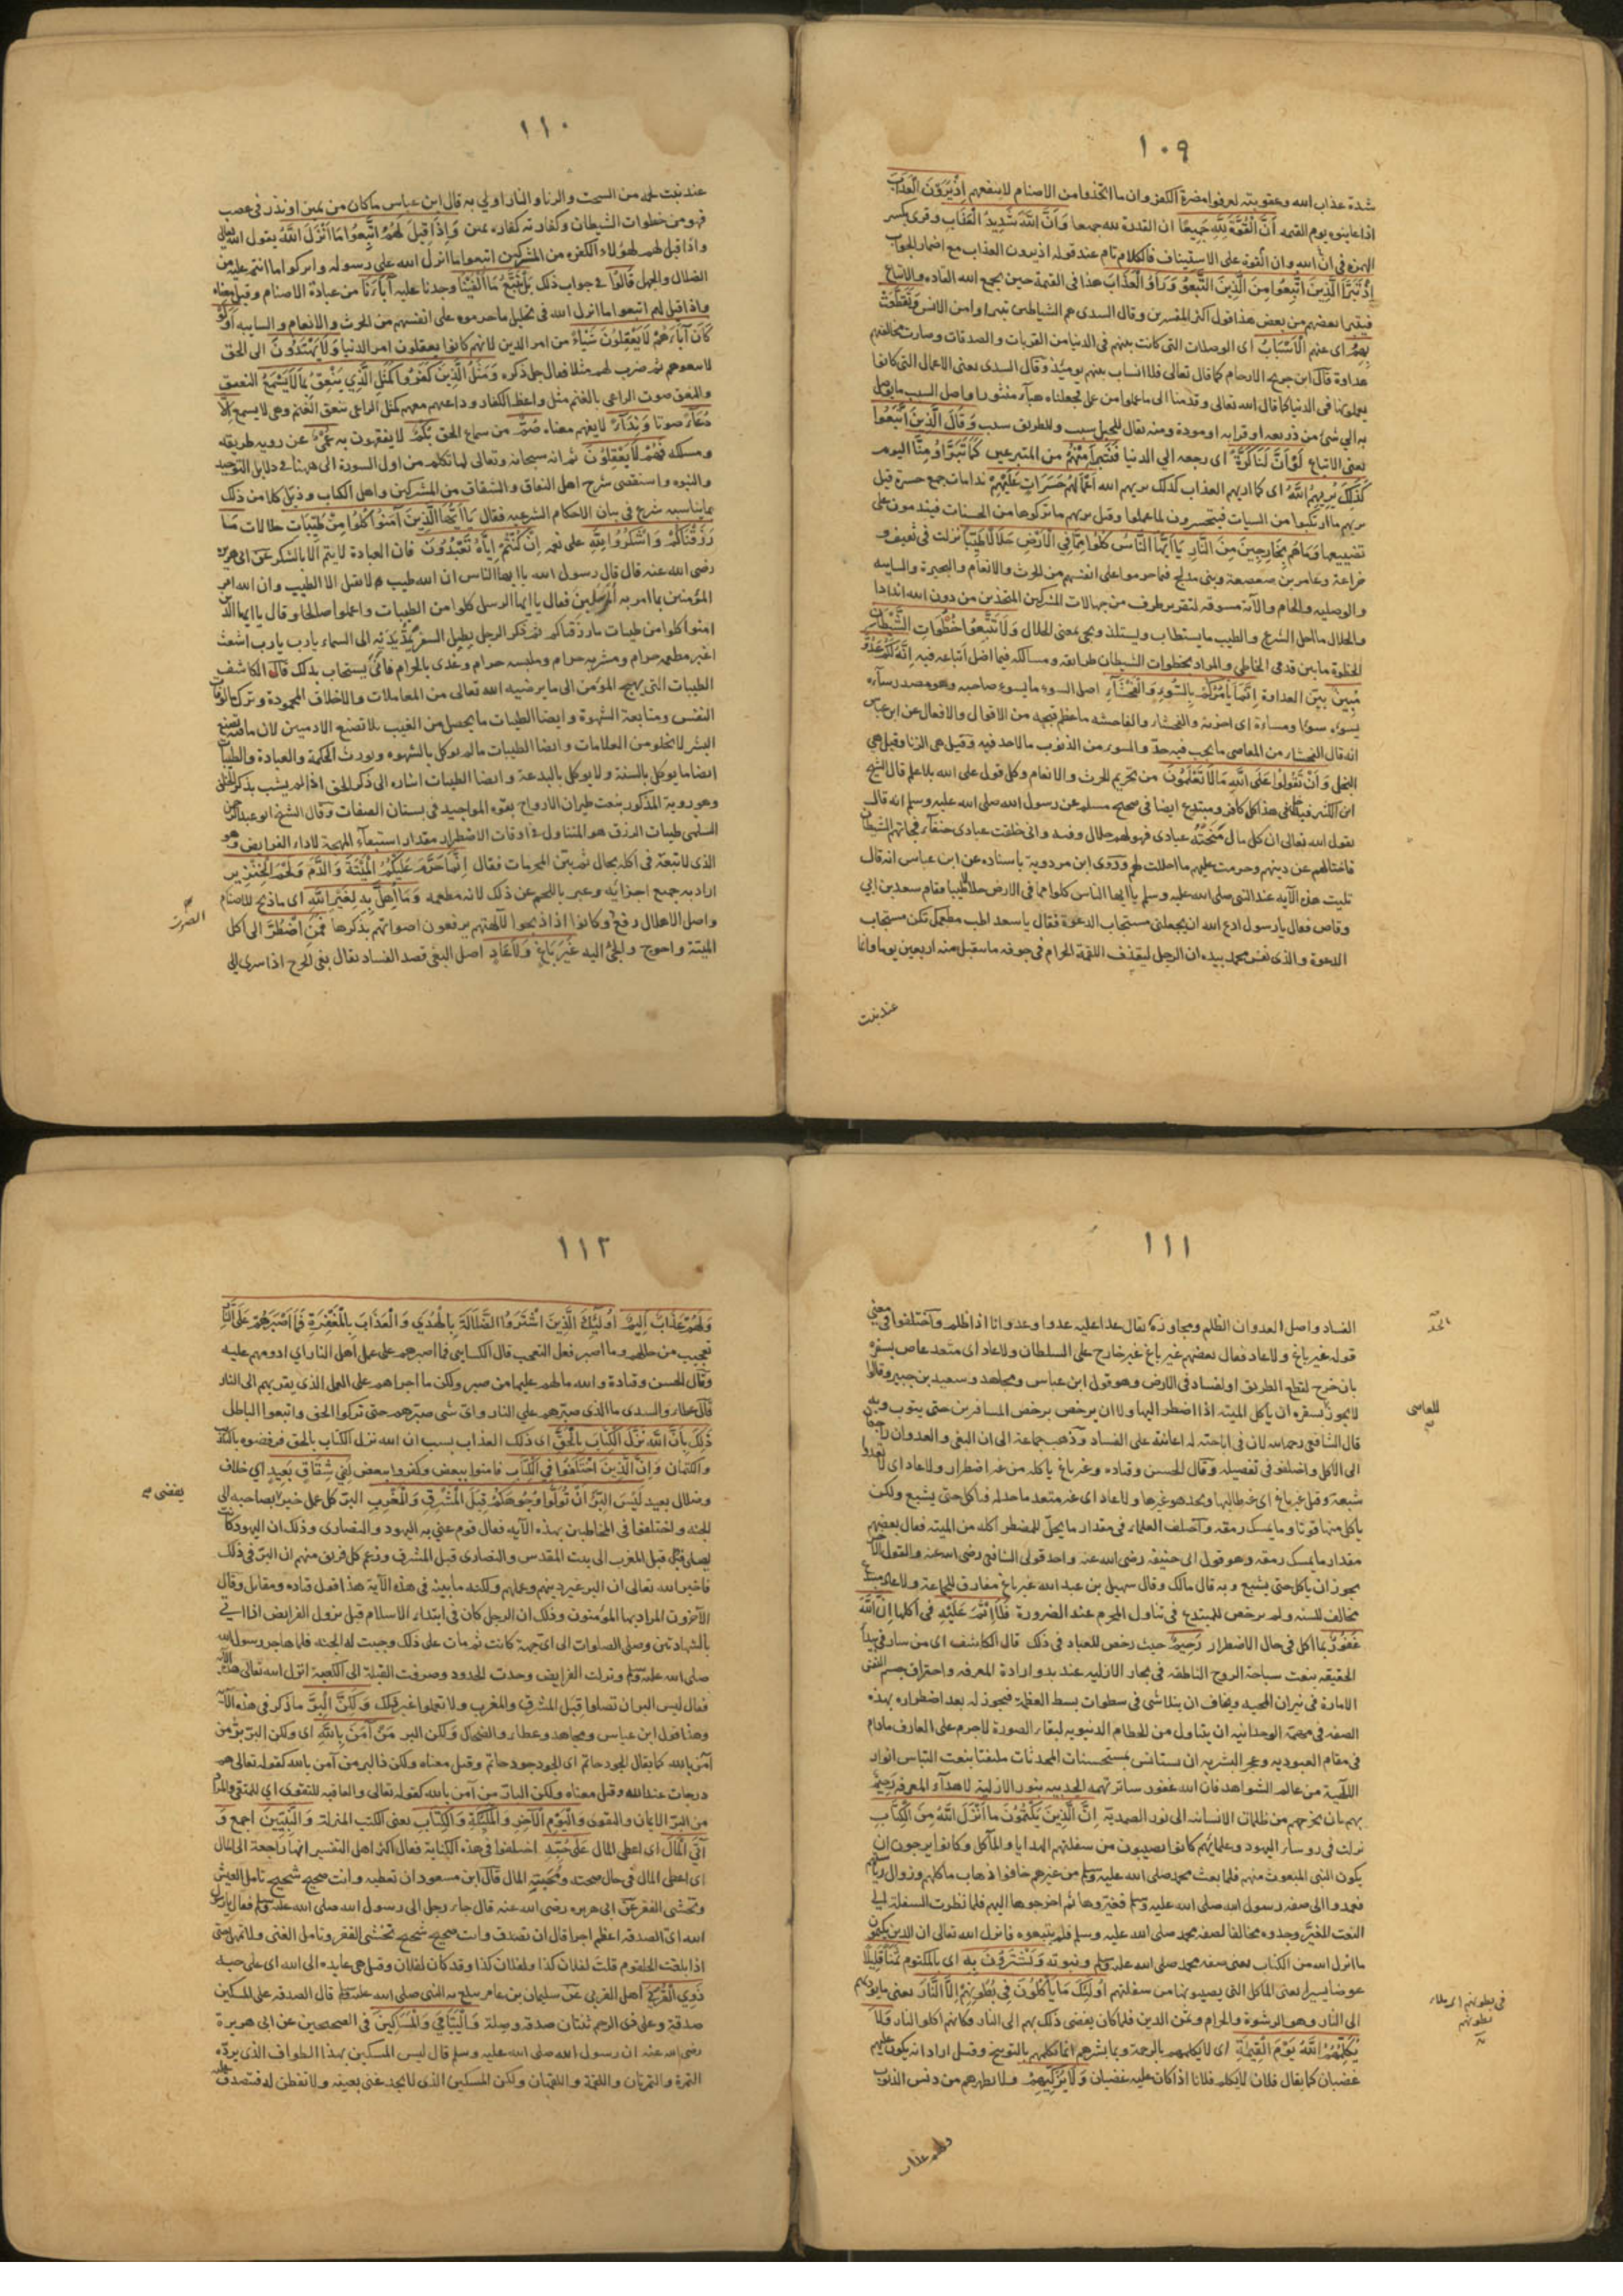 ١٠٩
شدة عذاب الله وعقوبته لعرفوا مضرة الكفر وان ما اتخذوا من الاصنام لا ينفعهم إِذْ يَرَوْنَ الْعَذَابَ
اذا عاينوه يوم القيمه أَنَّ الْقُوَّةَ لِلَّهِ جَمِيعًا ان القدرة لله جميعا وَأَنَّ اللَّهَ شَدِيدُ الْعَذَابِ وقرئ بكسر
الهمزة في ان الله وان القوة على الاستيناف فالكلام تام عند قوله اذ يرون العذاب مع اضمار الجواب
إِذْ تَبَرَّأَ الَّذِينَ اتُّبِعُوا مِنَ الَّذِينَ اتَّبَعُوا وَرَأَوُا الْعَذَابَ هذا في القيمة حين يجمع الله القاده والاتباع
فيتبرا بعضهم من بعض هذا قول اكثر المفسرين وقال السدى هم الشياطين تبراوا من الانس وَتَقَطَّعَتْ
بِهِمُ اى عنهم الْأَسْبَابُ اى الوصلات التى كانت بينهم فى الدنيا من القربات والصدقات وصارت مخالفتهم
عداوة قال ابن جريج الارحام كما قال تعالى فلا انساب بينهم يومئذ وقال السدى يعنى الاعمال التى كانوا
يعملونها فى الدنيا كما قال الله تعالى وقدمنا الى ما عملوا من عمل فجعلناه هباء منثورا واصل السبب ما يوصل
به الى شئ من ذريعه او قرابه او مودة ومنه يقال للحبل سبب وللطريق سبب وَقَالَ الَّذِينَ اتَّبَعُوا
يعنى الاتباع لَوْ أَنَّ لَنَا كَرَّةً اى رجعه الى الدنيا فَنَتَبَرَّأَ مِنْهُمْ من المتبوعين كَمَا تَبَرَّءُوا مِنَّا اليوم
كَذَلِكَ يُرِيهِمُ اللَّهُ اى كما اريهم العذاب كذلك يريهم الله أَعْمَالَهُمْ حَسَرَاتٍ عَلَيْهِمْ ندامات جمع حسرة قيل
يريهم ما ارتكبوا من السيات فيتحسرون لما عملوا وقيل يريهم ما تركوها من الحسنات فيندمون على
تضييعها وَمَا هُمْ بِخَارِجِينَ مِنَ النَّارِ يَا أَيُّهَا النَّاسُ كُلُوا مِمَّا فِي الْأَرْضِ حَلَالًا طَيِّبًا نزلت فى ثقيف و
خزاعة وعامر بن صعصعة وبنى مدلج فيما حرموا على انفسهم من الحرث والانعام والبحيرة والسايبه
والوصليه والحام والآية مسوقه لتقرير طرف من جهالات المشركين المتخذين من دون الله اندادا
والحلال ما احل الشرع والطيب ما يستطاب ويستلذ ويجى بمعنى الحلال وَلَا تَتَّبِعُوا خُطُوَاتِ الشَّيْطَانِ
الخطوة ما بين قدمى الخاطى والمراد بخطوات الشيطان طرايقه ومسالكه فيما اضل اتباعه فيه إِنَّهُ لَكُمْ عَدُوٌّ
مُبِينٌ بيّن العداوة إِنَّمَا يَأْمُرُكُمْ بِالسُّوءِ وَالْفَحْشَاءِ اصل السوء ما يسوء صاحبه وهو مصدر ساء
يسوء سوءا ومساءة اى احزنه والفحشاء والفاحشه ما عظم قبحه من الاقوال والافعال عن ابن عباس
انه قال الفحشاء من المعاصى ما يجب فيه حد والسوء من الذنوب ما لا حد فيه وقيل هى الزنا وقيل هى
البخل وَأَنْ تَقُولُوا عَلَى اللَّهِ مَا لَا تَعْلَمُونَ من تحريم الحرث والانعام وكل قول على الله بلا علم قال الشيخ
ابن الكثير فيدخل فى هذا كل كافر ومبتدع ايضا فى صحيح مسلم عن رسول الله صلى الله عليه وسلم انه قال
يقول الله تعالى ان كل مال مَنَحْتُهُ عبادى فهو لهم حلال وفيه وانى خلقت عبادى حنفاء فجاءتهم الشياطين
فاختالهم عن دينهم وحرمت عليهم ما احللت لهم وروى ابن مردوية باسناده عن ابن عباس انه قال
تليت هذه الآية عند النبى صلى الله عليه وسلم يا ايها الناس كلوا مما فى الارض حلالا طيبا فقام سعد بن ابى
وقاص فقال يا رسول ادع الله ان يجعلنى مستجاب الدعوة فقال يا سعد اطب مطعمك تكن مستجاب
الدعوة والذى نفس محمد بيده ان الرجل ليقذف اللقمة الحرام فى جوفه ما يتقبل منه اربعين يوما وايما
عبد نبت
١١٠
عبد نبت لحمه من السحت والربا والنار اولى به قال ابن عباس ما كان من يمين او نذر فى غضب
فهو من خطوات الشيطان وكفارته كفاره يمين وَإِذَا قِيلَ لَهُمُ اتَّبِعُوا مَا أَنْزَلَ اللَّهُ يقول الله تعالى
واذا قيل لهم لهؤلاء الكفره من المشركين اتبعوا ما انزل الله على رسوله واتركوا ما انتم عليه من
الضلال والجهل قَالُوا فى جواب ذلك بَلْ نَتَّبِعُ مَا أَلْفَيْنَا وجدنا عليه آبَاءَنَا من عبادة الاصنام وقيل معناه
واذا قيل لهم اتبعوا ما انزل الله فى تحليل ما حرموه على انفسهم من الحرث والانعام والسايبه أَوَلَوْ
كَانَ آبَاؤُهُمْ لَا يَعْقِلُونَ شَيْئًا من امر الدين لانهم كانوا يعقلون امر الدنيا وَلَا يَهْتَدُونَ الى الحق
لاتبعوهم ثم ضرب لهم مثلا فقال جل ذكره وَمَثَلُ الَّذِينَ كَفَرُوا كَمَثَلِ الَّذِي يَنْعِقُ بِمَا لَا يَسْمَعُ النعيق
والنعق صوت الراعى بالغنم مثل واعظ الكفار وداعيهم معهم كمثل الراعى ينعق الغنم وهى لا يسمع إِلَّا
دُعَاءً صوتا وَنِدَاءً لا يفهم معناه صُمٌّ من سماع الحق بُكْمٌ لا يفقهون به عُمْيٌ عن رويه طريقه
ومسلكه فَهُمْ لَا يَعْقِلُونَ ثم انه سبحانه وتعالى لما تكلم من اول السورة الى ههنا فى دلايل التوحيد
والنبوه واستقصى شرح اهل النفاق والشقاق من المشركين واهل الكتاب وذيل كلا من ذلك
بما يناسبه شرع فى بيان الاحكام الشرعيه فقال يَا أَيُّهَا الَّذِينَ آمَنُوا كُلُوا مِنْ طَيِّبَاتِ حلالات مَا
رَزَقْنَاكُمْ وَاشْكُرُوا لِلَّهِ على نعمه إِنْ كُنْتُمْ إِيَّاهُ تَعْبُدُونَ فان العبادة لا يتم الا بالشكر عن ابى هريرة
رضى الله عنه قال قال رسول الله يا ايها الناس ان الله طيب لا يقبل الا الطيب وان الله امر
المؤمنين بما امر به المرسلين فقال يا ايها الرسل كلوا من الطيبات واعملوا صالحا وقال يا ايها الذين
امنوا كلوا من طيبات ما رزقناكم ثم ذكر الرجل يطيل السفر يمدّ يديه الى السماء يا رب يا رب اشعث
اغبر مطعمه حرام ومشربه حرام وملبسه حرام وغذى بالحرام فانى يستجاب بذلك قال الكاشف
الطيبات التى يهيج المؤمن الى ما يرضيه الله تعالى من المعاملات والاخلاق المحمودة وترك مالوفات
النفس ومتابعة الشهوة وايضا الطيبات ما يحصل من الغيب بلا تصنع الادميين لان ما فيه تصنع
البشر لا يخلو من العلامات وايضا الطيبات ما لم يوكل بالشهوه ويورث الحكمة والعبادة والطيبات
ايضا ما يوكل بالسنة ولا يوكل بالبدعة وايضا الطيبات اشاره الى ذكر الحق اذا لم يشب بذكر الخلق
وهو روية المذكور بنعت طيران الارواح بقوه المواجيد فى بستان الصفات وقال الشيخ ابو عبد الرحمن
السلمى طيبات الرزق هو المتناول فى اوقات الاضطرار مقدار استبقاء المهجة لاداء الفرايض وهو
الذى لا تبعة فى اكله بحال ثم بين المحرمات فقال إِنَّمَا حَرَّمَ عَلَيْكُمُ الْمَيْتَةَ وَالدَّمَ وَلَحْمَ الْخِنْزِيرِ
اراد به جميع اجزائه وعبر باللحم عن ذلك لانه مطعمه وَمَا أُهِلَّ بِهِ لِغَيْرِ اللَّهِ اى ما ذبح للاصنام
واصل الاهلال رفع وكانوا اذا ذبحوا لآلهتهم يرفعون اصواتهم بذكرها فَمَنِ اضْطُرَّ الى اكل
الميتة واحوج والجئ اليه غَيْرَ بَاغٍ وَلَا عَادٍ اصل البغى قصد الفساد يقال بغى الجرح اذا سرى الى
الصوت
١١١
الفساد واصل العدوان الظلم ومجاوزة يقال عدا عليه عدوا وعدوانا اذا ظلم واختلفوا فى معنى
قوله غير باغ ولا عاد فقال بعضهم غير باغ غير خارج على السلطان ولا عاد اى متعد عاص بسفره
بان خرج لقطع الطريق او لفساد فى الارض وهو قول ابن عباس ومجاهد وسعيد بن جبير وقالوا
لا يجوز بسفره ان ياكل الميته اذا اضطر اليها ولا ان يرخص برخص المسافرين حتى يتوب وبه
قال الشافعى رحمه الله لان فى اباحته له اعانة على الفساد وذهب جماعة الى ان البغى والعدوان راجعان
الى الاكل واختلفوا فى تفصيله وقال الحسن وقتاده وغير باغ ياكله من غير اضطرار ولا عاد اى لا يعدوا
شبعه وقيل غير باغ اى غير طالبها ويجد هو غيرها ولا عاد اى غير متعد ما حد له فياكل حتى يشبع ولكن
ياكل منها قوتا وما يمسك رمقه واختلف العلماء فى مقدار ما يحل للمضطر اكله من الميته فقال بعضهم
مقدار ما يمسك رمقه وهو قول ابى حنيفه رضى الله عنه واحد قولى الشافعى رضى الله عنه والقول الآخر
يجوز ان ياكل حتى يشبع وبه قال مالك وقال سهيل بن عبد الله غير باغ مفارق للجماعة ولا عاد مبتدع
مخالف للسنه ولم يرخص للمبتدع فى تناول المحرم عند الضرورة فَلَا إِثْمَ عَلَيْهِ فى اكلها إِنَّ اللَّهَ
غَفُورٌ بما اكل فى حال الاضطرار رَحِيمٌ حيث رخص للعباد فى ذلك قال الكاشف اى من سار فى بيداء
الحقيقه بنعت سباحة الروح الناطقه فى بحار الازليه عند بدو ارادة المعرفه واحتراق جسم النفس
الاماره فى نيران المحبه ويخاف ان يتلاشى فى سطوات بسط العظمة فيجوز له بعد اضطراره بهذه
الصفه فى مهمة الوحدانيه ان يتناول من الحطام الدنيويه لبقاء الصورة لاجرم على العارف مادام
فى مقام العبوديه وعجز البشريه ان يستانس بمستحسنات المحدثات ملتفتا بنعت التباس انوار
اللاهية من عالم الشواهد فان الله غفور ساتر تهمه الحدثيه بنور الازلية لاهداء المعرفه رَحِيمٌ
بهم بان يخرجهم من ظلمات الانسانيه الى نور الصمدية إِنَّ الَّذِينَ يَكْتُمُونَ مَا أَنْزَلَ اللَّهُ مِنَ الْكِتَابِ
نزلت فى روساء اليهود وعلمائهم كانوا يصيبون من سفلتهم الهدايا والمآكل وكانوا يرجون ان
يكون النبى المبعوث منهم فلما بعث محمد صلى الله عليه وسلم من غيرهم خافوا ذهاب ماكلهم وزوال رياستهم
فعمدوا الى صفه رسول الله صلى الله عليه وسلم فغيروها ثم اخرجوها اليهم فلما نظرت السفلة الى
النعت المغير وجدوه مخالفا لصفه محمد صلى الله عليه وسلم فلم يتبعوه فانزل الله تعالى ان الذين يكتمون
ما انزل الله من الكتاب يعنى صفه محمد صلى الله عليه وسلم ونبوته وَيَشْتَرُونَ بِهِ اى بالمكتوم ثَمَنًا قَلِيلًا
عوضا يسيرا يعنى المآكل التى يصيبونها من سفلتهم أُولَئِكَ مَا يَأْكُلُونَ فِي بُطُونِهِمْ إِلَّا النَّارَ يعنى ما يوديهم
الى النار وهو الرشوة والحرام وثمن الدين فلما كان يفضى ذلك بهم الى النار فكانهم اكلوا النار وَلَا
يُكَلِّمُهُمُ اللَّهُ يَوْمَ الْقِيمَةِ اى لا يكلمهم بالرحمة وبما يبشرهم انما يكلمهم بالتوبيخ وقيل اراد انه يكون عليهم
غضبان كما يقال فلان لا يكلم فلانا اذا كان عليه غضبان وَلَا يُزَكِّيهِمْ ولا يطهرهم من دنس الذنوب
الحد
للعاصى
فى بطونهم اى ملاء
بطونهم
ولهم عذاب
١١٢
وَلَهُمْ عَذَابٌ أَلِيمٌ أُولَئِكَ الَّذِينَ اشْتَرَوُا الضَّلَالَةَ بِالْهُدَى وَالْعَذَابَ بِالْمَغْفِرَةِ فَمَا أَصْبَرَهُمْ عَلَى النَّارِ
تعجيب من حالهم وما اصبر فعل التعجب قال الكسايى فما اصبرهم على عمل اهل النار اى ادومهم عليه
وقال الحسن وقتادة والله ما لهم عليها من صبر ولكن ما اجراهم على العمل الذى يقربهم الى النار
قال عطاء والسدى ما الذى صبرهم على النار واى شى صبرهم حتى تركوا الحق واتبعوا الباطل
ذَلِكَ بِأَنَّ اللَّهَ نَزَّلَ الْكِتَابَ بِالْحَقِّ اى ذلك العذاب بسبب ان الله نزل الكتاب بالحق فرفضوه بالتكذيب
والكتمان وَإِنَّ الَّذِينَ اخْتَلَفُوا فِي الْكِتَابِ فامنوا ببعض وكفروا ببعض لَفِي شِقَاقٍ بَعِيدٍ اى خلاف
وضلال بعيد لَيْسَ الْبِرَّ أَنْ تُوَلُّوا وُجُوهَكُمْ قِبَلَ الْمَشْرِقِ وَالْمَغْرِبِ البر كل عمل خير بصاحبه الى
الجنه واختلفوا فى المخاطبين بهذه الآيه فقال قوم عنى به اليهود والنصارى وذلك ان اليهود كانت
يصلى قبل المغرب الى بيت المقدس والنصارى قبل المشرق وزعم كل فريق منهم ان البر فى ذلك
فاخبر الله تعالى ان البر غير دينهم وعملهم ولكنه ما بينه فى هذه الآية هذا قول قتاده ومقاتل وقال
الآخرون المراد بها المؤمنون وذلك ان الرجل كان فى ابتداء الاسلام قبل نزول الفرايض اذا اتى
بالشهادتين وصلى الصلوات الى اى جهة كانت ثم مات على ذلك وجبت له الجنه فلما هاجر رسول الله
صلى الله عليه وسلم ونزلت الفرايض وحدت الحدود وصرفت القبلة الى الكعبه انزل الله تعالى هذه الآية
فقال ليس البر ان تصلوا قبل المشرق والمغرب ولا تعملوا غير ذلك وَلَكِنَّ الْبِرَّ ما ذكر فى هذه الآية
وهذا قول ابن عباس ومجاهد وعطاء والضحاك ولكن البر مَنْ آمَنَ بِاللَّهِ اى ولكن البر بر من
آمن بالله كما يقال الجود حاتم اى الجود جود حاتم وقيل معناه ولكن ذا البر من آمن بالله كقوله تعالى هم
درجات عند الله وقيل معناه ولكن البار من آمن بالله كقوله تعالى والعاقبه للتقوى اى للمتقى والمراد
من البر الايمان والتقوى وَالْيَوْمِ الْآخِرِ وَالْمَلَائِكَةِ وَالْكِتَابِ يعنى الكتب المنزلة وَالنَّبِيِّينَ اجمع وَ
آتَى الْمَالَ اى اعطى المال عَلَى حُبِّهِ اختلفوا فى هذه الكناية فقال اكثر اهل التفسير انها راجعة الى المال
اى اعطى المال فى حال صحته ومحبته المال قال ابن مسعود ان تعطيه وانت صحيح شحيح تامل العيش
وتخشى الفقر عن ابى هريره رضى الله عنه قال جاء رجل الى رسول الله صلى الله عليه وسلم فقال يا رسول
الله اى الصدقه اعظم اجرا قال ان تصدق وانت صحيح شحيح تخشى الفقر وتامل الغنى ولا تمهل حتى
اذا بلغت الحلقوم قلت لفلان كذا ولفلان كذا وقد كان لفلان وقيل هى عايده الى الله اى على حبه
ذَوِي الْقُرْبَى اهل القربى عن سليمان بن عامر يبلغ به النبى صلى الله عليه وسلم قال الصدقه على المسكين
صدقة وعلى ذى الرحم ثنتان صدقه وصلة وَالْيَتَامَى وَالْمَسَاكِينَ فى الصحيحين عن ابى هريرة
رضى الله عنه ان رسول الله صلى الله عليه وسلم قال ليس المسكين بهذا الطواف الذى يرده
التمرة والتمرتان واللقمة واللقمتان ولكن المسكين الذى لا يجد غنى يغنيه ولا يفطن له فتصدق عليه
يفضى